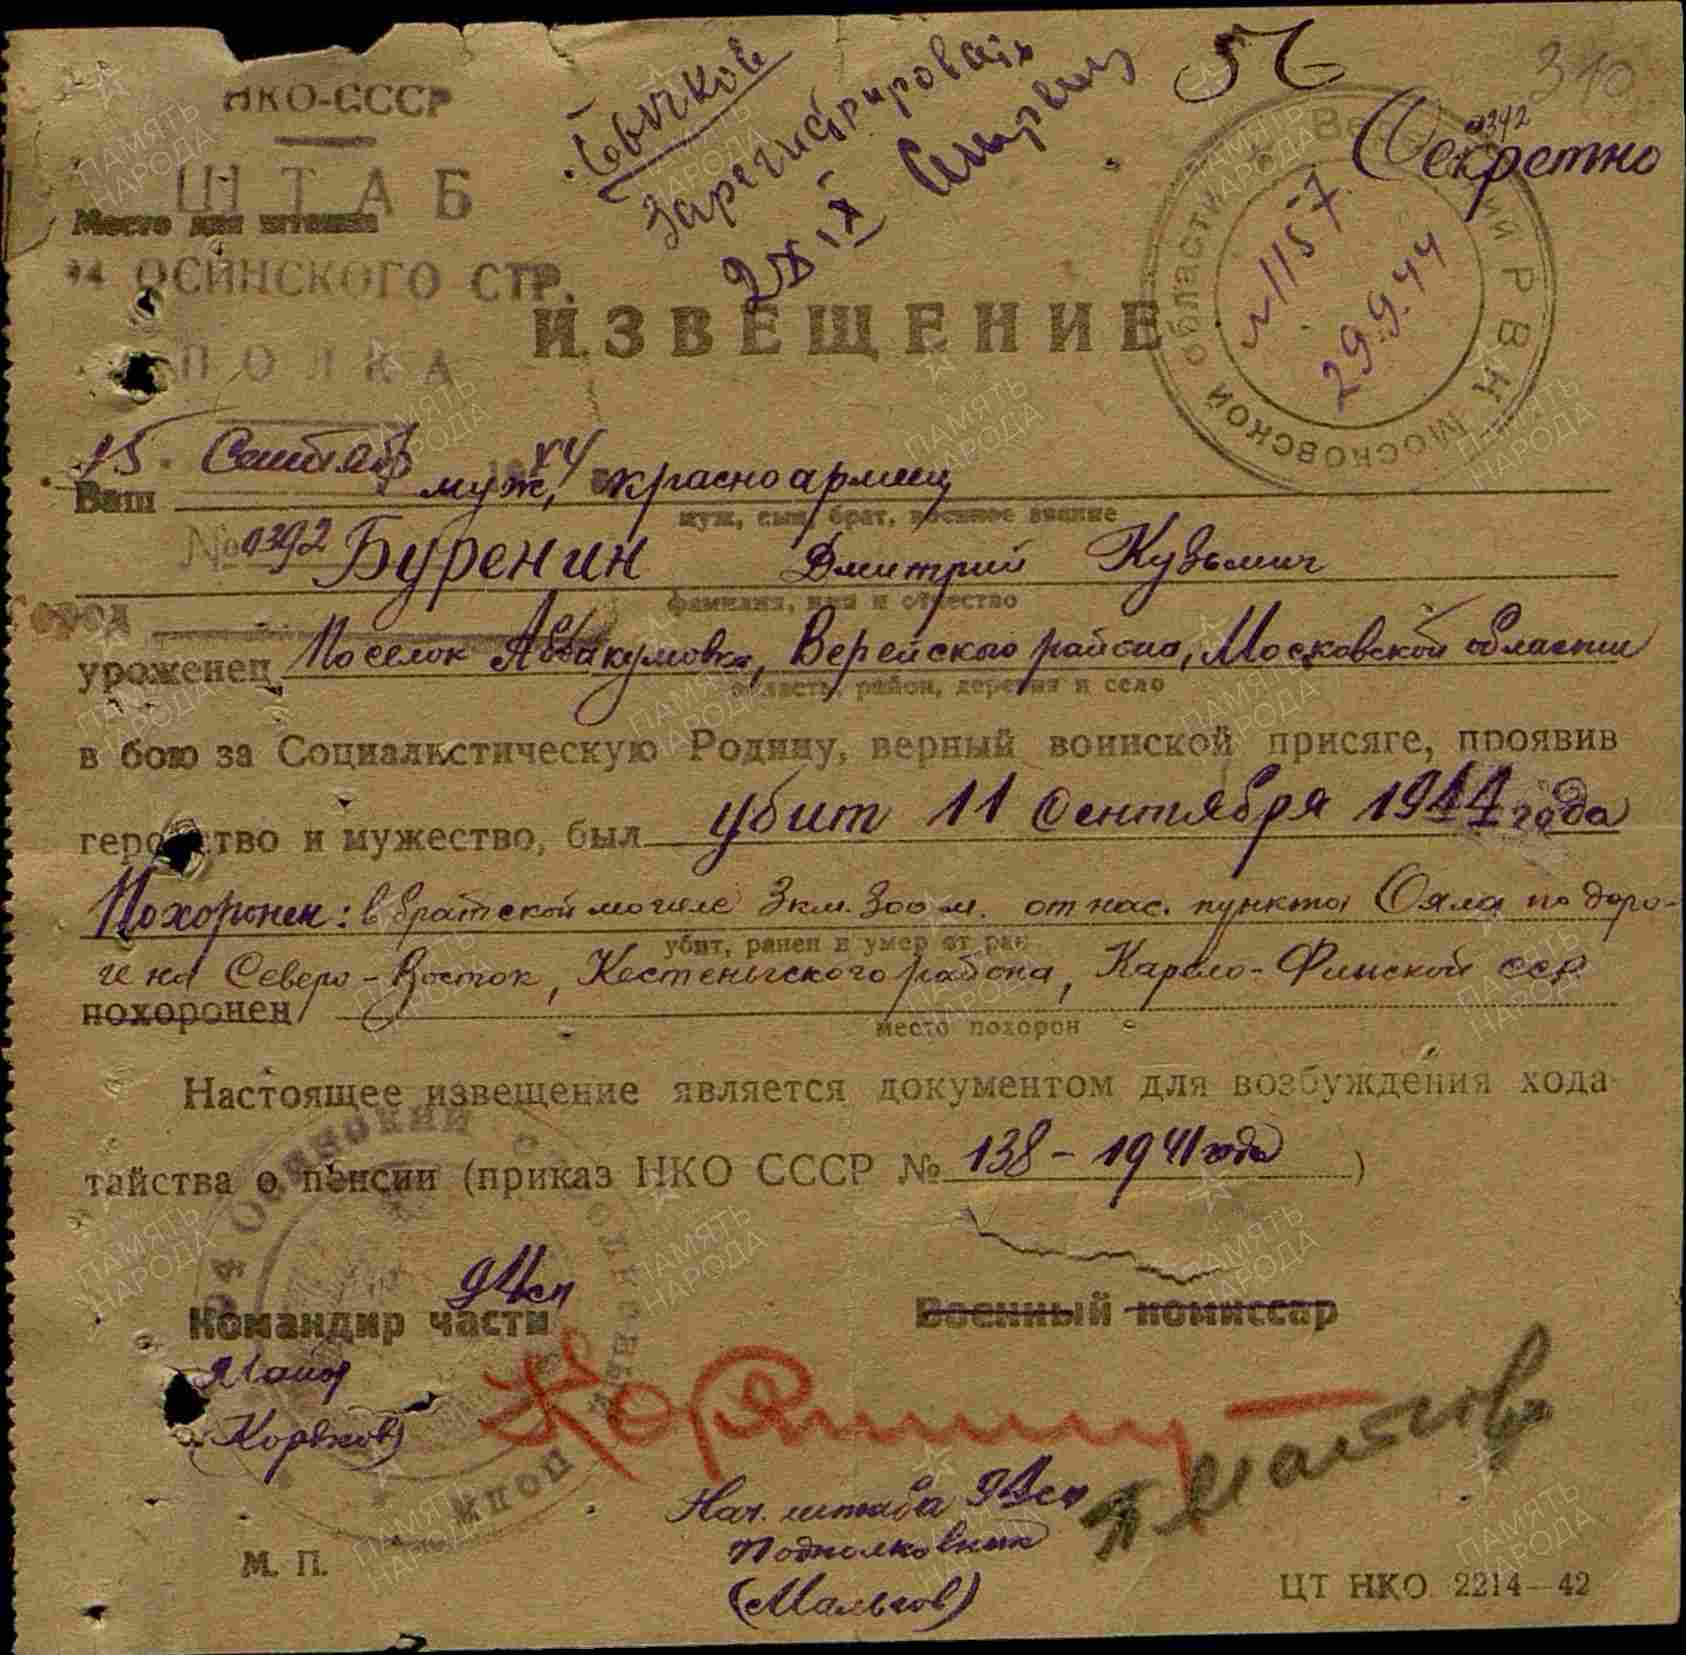 НКО-СССР
ШТАБ
Место для штампа
94 ОСИНСКОГО СТР.
ПОЛКА
Зарегистрировать
IX
57
310
0392
Секретно
Московской области
РВК
№1157
29.9.44
ИЗВЕЩЕНИЕ
15 Сентяб 44
Ваш муж, красноармеец
муж, сын, брат, военное звание
№ 0392 Буренин Дмитрий Кузьмич
фамилия, имя и отчество
Город
уроженец Поселок Аввакумовка, Верейского района, Московской области
область, район, деревня и село
в бою за Социалистическую Родину, верный воинской присяге, проявив
геройство и мужество, был убит 11 Сентября 1944 года
Похоронен: в братской могиле 3 км. 300 м. от нас. пункта Ояла по доро-
убит, ранен и умер от ран
ге на Северо-Восток, Кестеньгского района, Карело-Финской ССР
похоронен
место похорон
Настоящее извещение является документом для возбуждения хода
тайства о пенсии (приказ НКО СССР № 138-1941 года)
94 сп
Командир части Военный комиссар
Майор
(Коряков)
Нач. штаба 94 сп
Подполковник
(Мальгов)
М. П.
ЦТ НКО 2214—42
ПАМЯТЬ НАРОДА